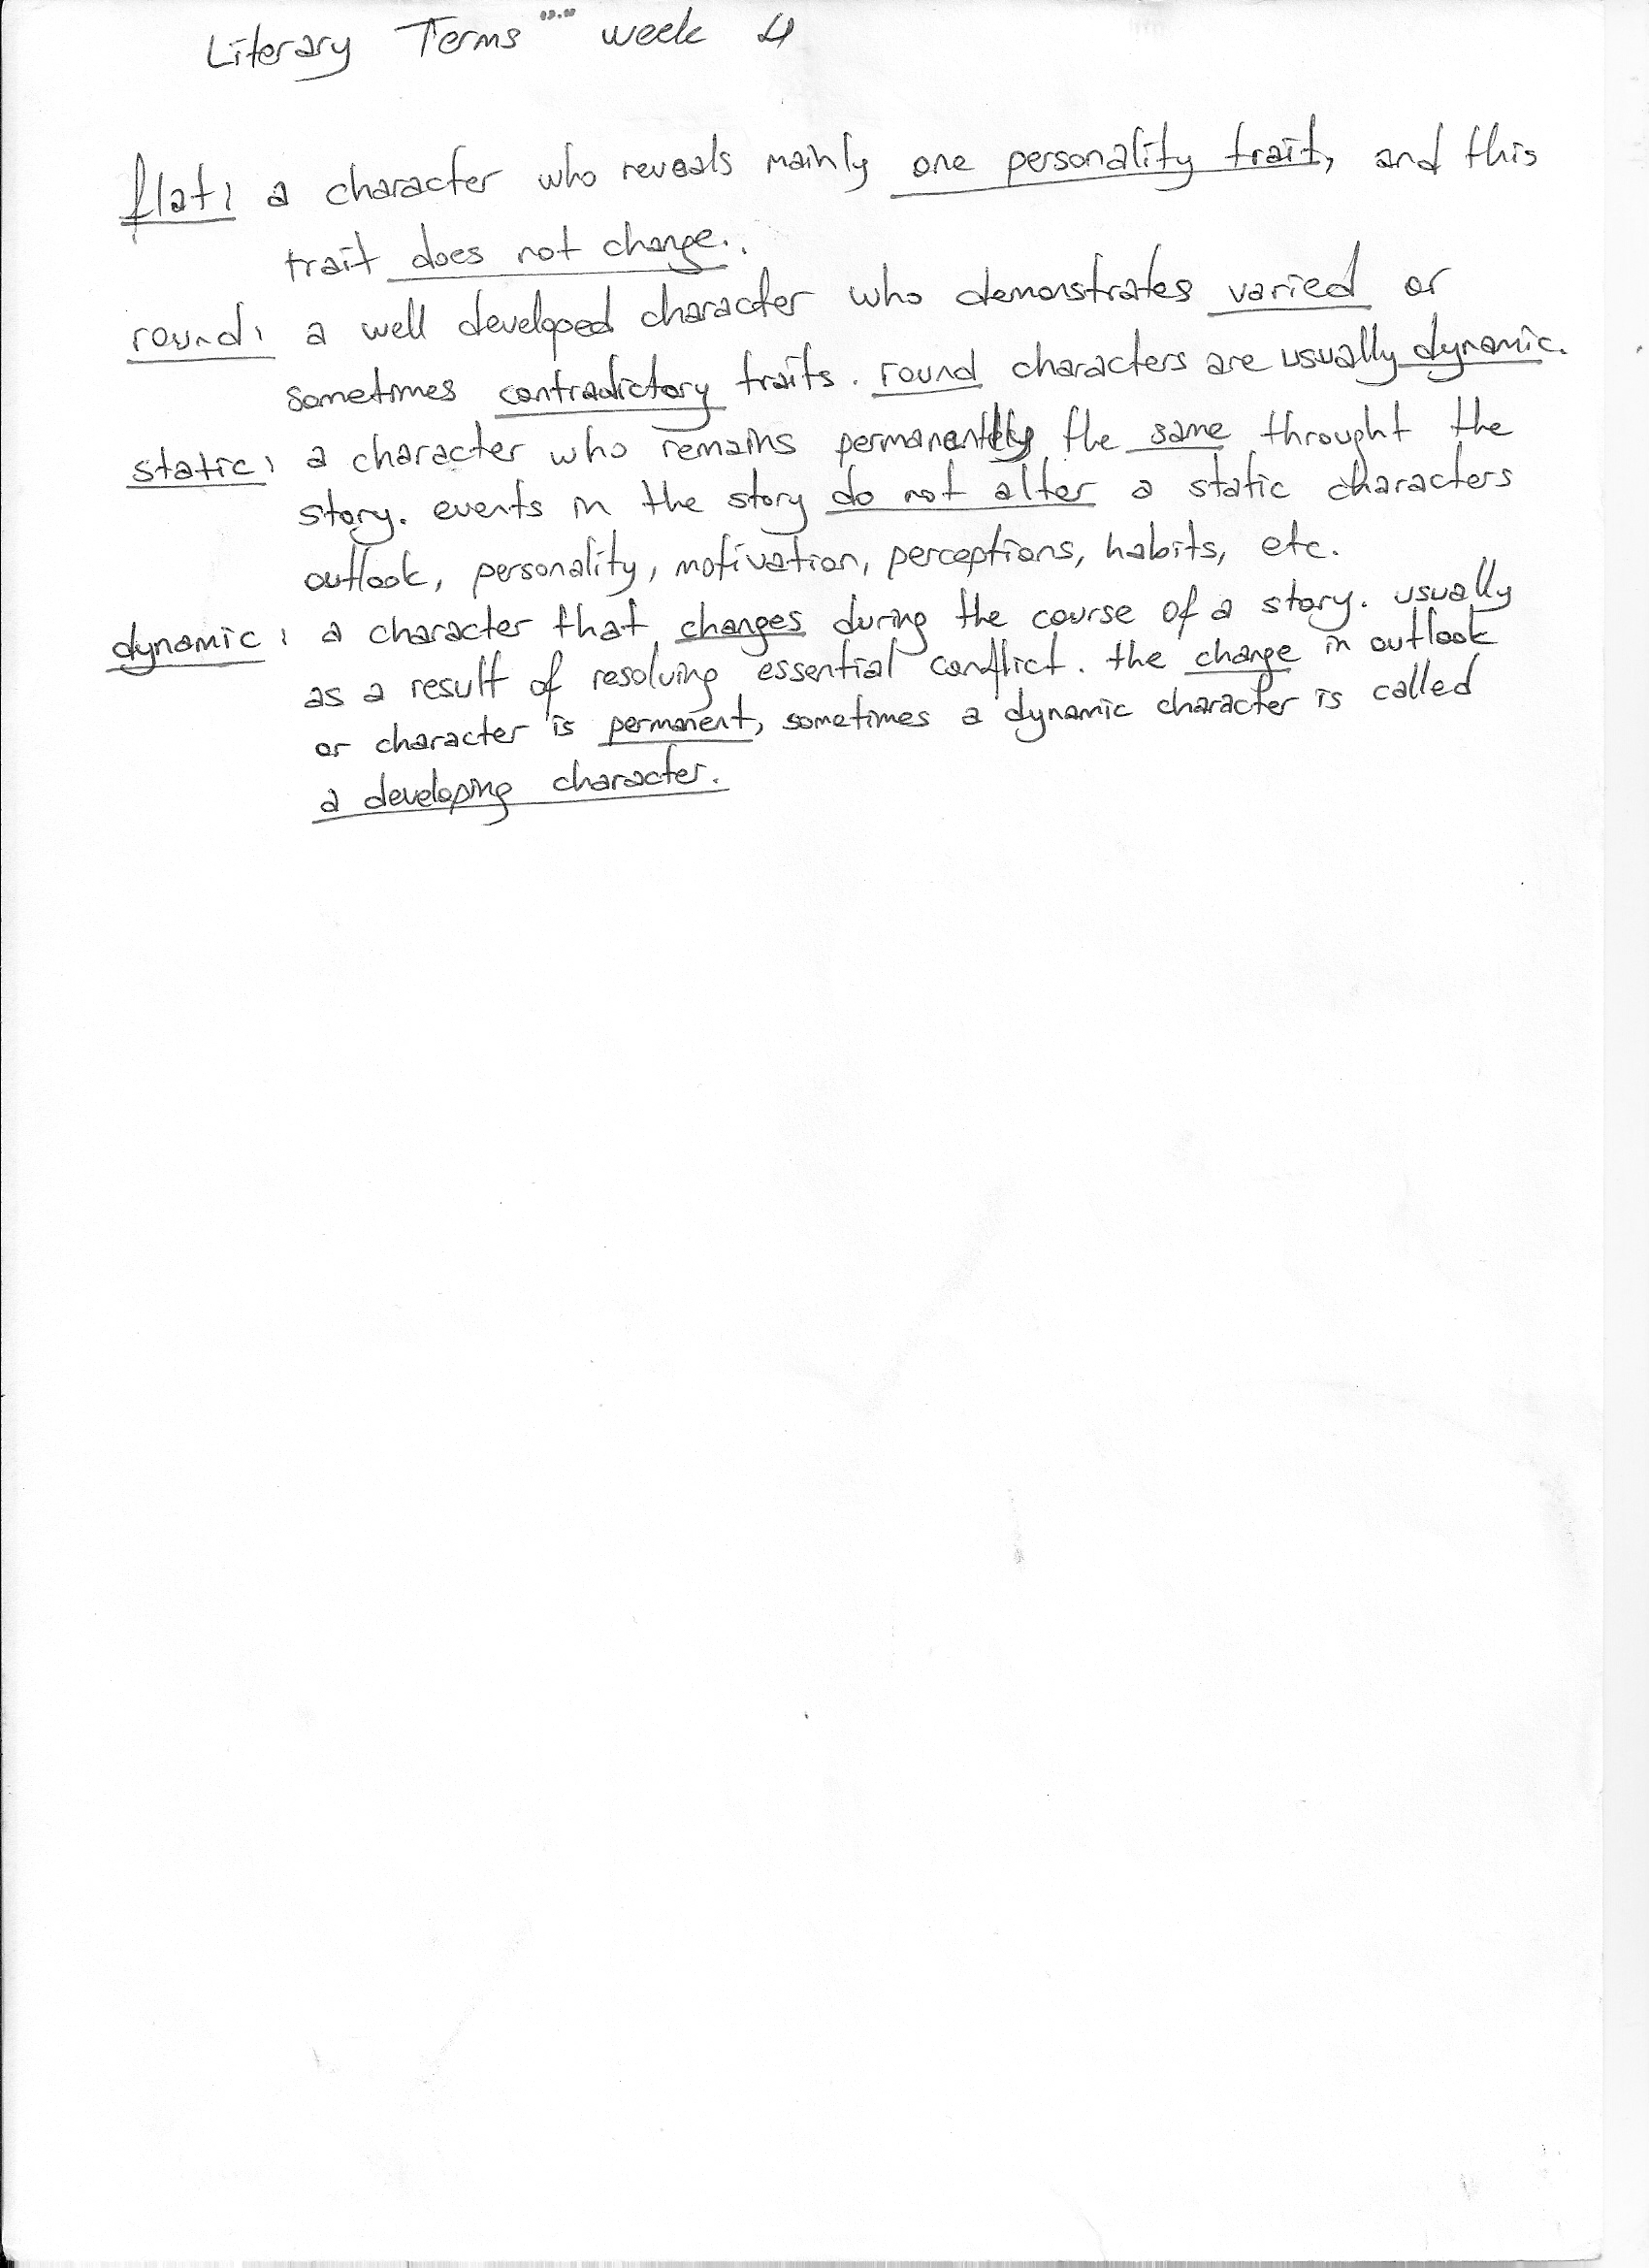 Literary Terms week 4
flat: a character who reveals mainly one personality trait, and this
trait does not change.
round: a well developed character who demonstrates varied or
sometimes contradictory traits. round characters are usually dynamic.
static: a character who remains permanently the same throught the
story. events in the story do not alter a static characters
outlook, personality, motivation, perceptions, habits, etc.
dynamic: a character that changes during the course of a story. usually
as a result of resolving essential conflict. the change in outlook
or character is permanent, sometimes a dynamic character is called
a developing character.